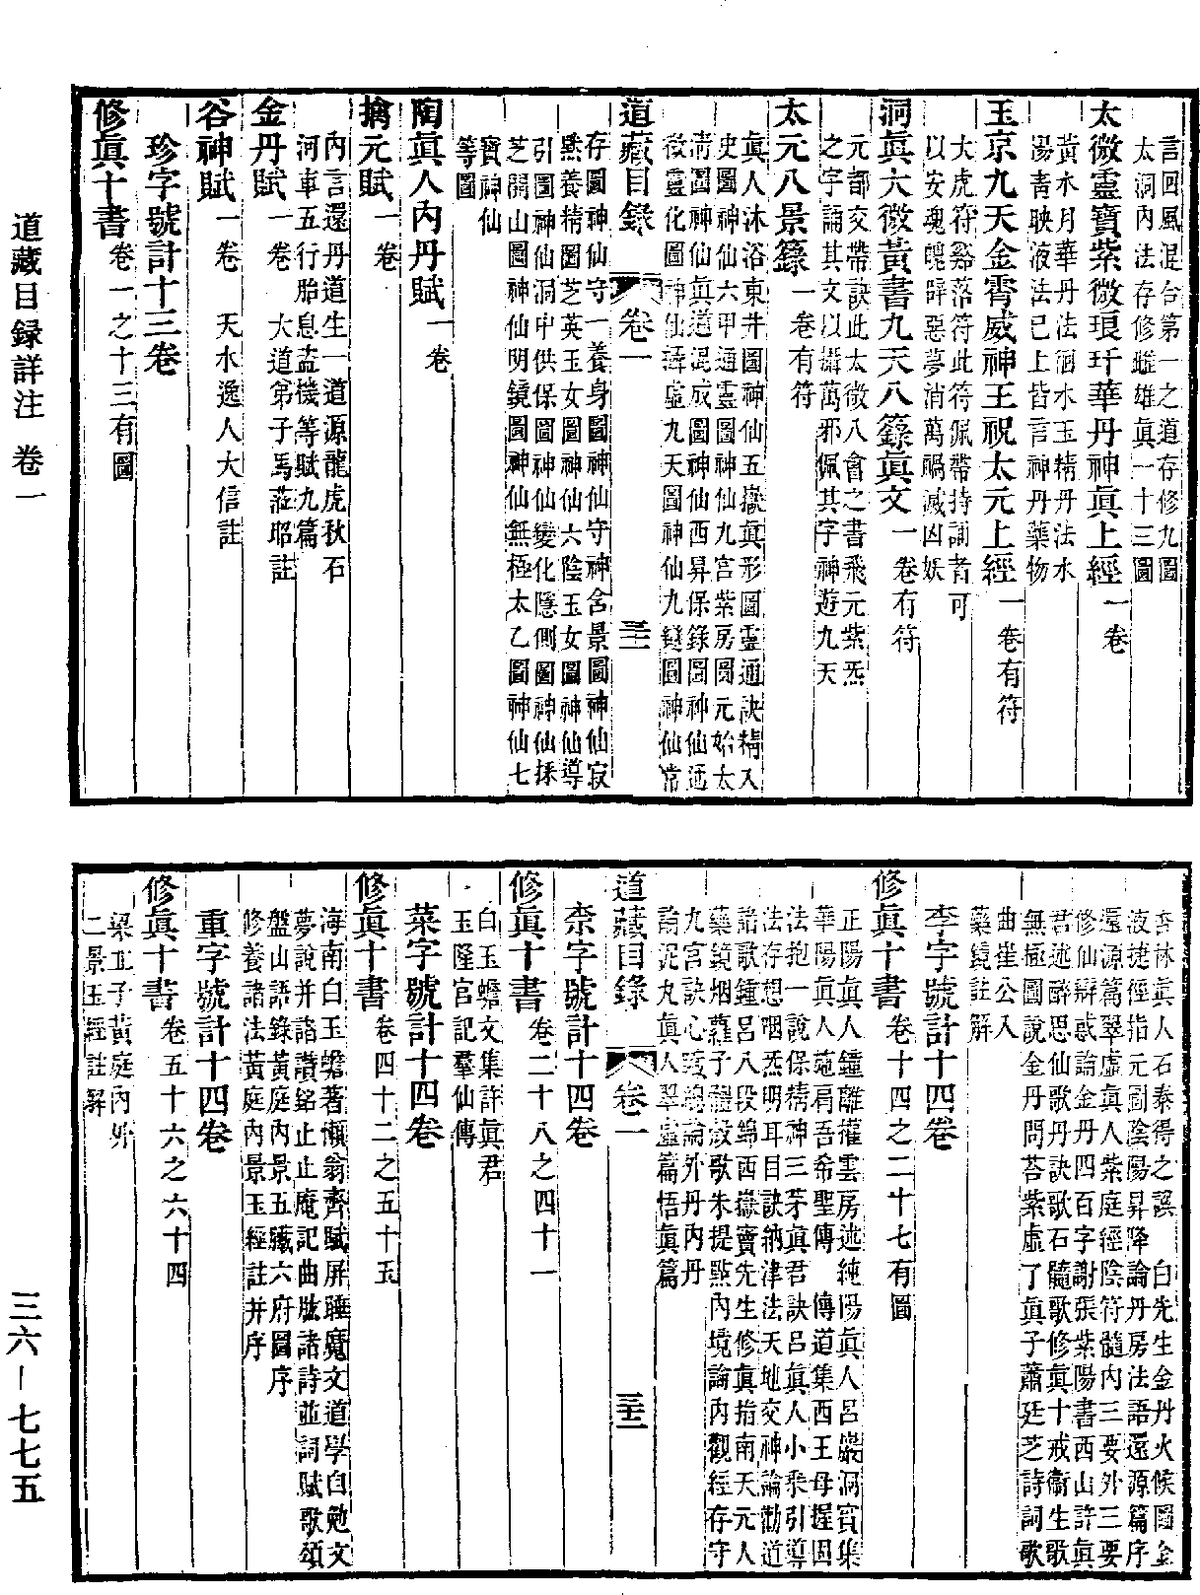 言回風混合第一之道存修九圖
太洞內法存修雌雄真一十三圖
太微靈寶紫微琅玕華丹神眞上經一卷
黃水月華丹法洄水玉精丹法水
湯青映液法已上皆言神丹藥物
玉京九天金霄威神王祝太元上經一卷有符
大虎符谿落符此符佩帶持誦者可
以安魂魄辟惡夢消萬禍滅凶妖
洞眞太微黃書九天八籙眞文一卷有符
元都交帶訣此太微八會之書飛元紫炁
之字誦其文以攝萬邪佩其字神遊九天
太元八景籙一卷有符
眞人沐浴東井圖神仙五嶽眞形圖靈通訣精入
史圖神仙六甲通靈圖神仙九宮紫房圖元始太
清圖神仙眞道混成圖神仙西昇保錄圖神仙迊
微靈化圖神仙譸虛九天圖神仙九變圖神仙常
道藏目錄 卷一 三十一
存圖神仙守一養身圖神仙守神含景圖神仙寂
默養精圖芝英玉女圖神仙六陰玉女圖神仙導
引圖神仙洞中供保圖神仙變化隱側圖神仙採
芝開山圖神仙明鏡圖神仙無極太乙圖神仙七
寶神仙
等圖
陶眞人內丹賦一卷
擒元賦一卷
內言還丹道生一道源龍虎秋石
河車五行胎息盜機等賦九篇
金丹賦一卷 大道弟子馬蒞昭註
谷神賦一卷 天水逸人大信註
珍字號計十三卷
修眞十書卷一之十三有圖
杏林眞人石泰得之譔 白先生金丹火候圖金
液捷徑指元圖陰陽昇降論丹房法語還源篇序
還源篇翠虛眞人紫庭經陰符髓內三要外三要
修仙辯惑論金丹四百字謝張紫陽書西山許眞
君述醉思仙歌丹訣歌石髓歌修眞十戒衞生歌
無極圖說金丹問荅紫虛了眞子蕭廷芝詩詞歌
曲崔公入
藥鏡註解
李字號計十四卷
修眞十書卷十四之二十七有圖
正陽眞人鍾離權雲房述純陽眞人呂巖洞賓集
華陽眞人施肩吾希聖傳 傳道集西王母握固
法抱一說保精神三茅眞君訣呂眞人小乘引導
法存想咽炁明耳目訣納津法天地交神論勸道
語歌鍾呂八段錦西嶽竇先生修眞指南天元人
藥鏡烟蘿子體殼歌朱提點內境論內觀經存守
九宮訣心鏡總論外丹內丹
論泥丸眞人翠虛篇悟眞篇
道藏目錄 卷一 三十二
柰字號計十四卷
修眞十書卷二十八之四十一
白玉蟾文集許眞君
玉隆宮記羣仙傳
菜字號計十四卷
修眞十書卷四十二之五十五
海南白玉蟾著懶翁齊賦屏睡魔文道學自勉文
夢說并諸讚銘止止庵記曲肱諸詩並詞賦歌頌
盤山語錄黃庭內景五臟六府圖序
修養諸法黃庭內景玉經註并序
重字號計十四卷
修眞十書卷五十六之六十四
梁丘子黃庭內外
二景玉經註解
道藏目録詳注 卷一
三六－七七五